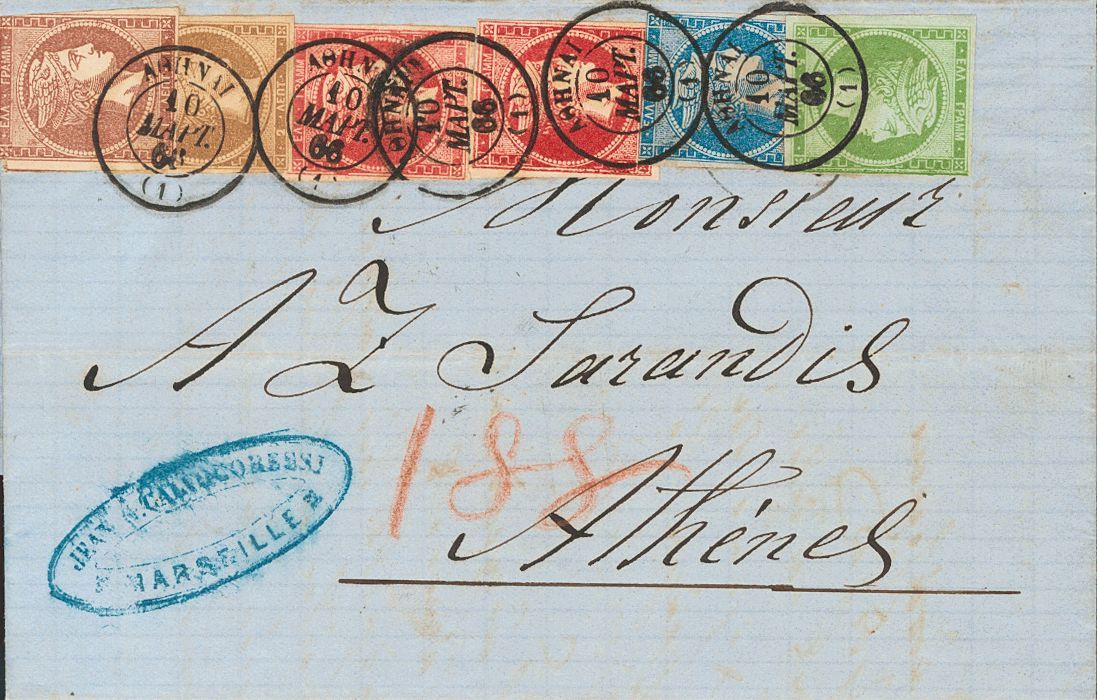 ΕΛΛ ΓΡΑΜΜ
2 ΛΕΠΤ
ΕΛΛ ΓΡΑΜΜ
ΑΘΗΝΑΙ
10
ΜΑΡΤ.
66
(1)
ΑΘΗΝΑΙ
10
ΜΑΡΤ.
66
(1)
ΑΘΗΝΑΙ
10
ΜΑΡΤ.
66
(1)
ΑΘΗΝΑΙ
10
ΜΑΡΤ.
66
ΑΘΗΝΑΙ
10
ΜΑΡΤ.
66
(1)
Monsieur
A Z Sarandis
188
Athénes
JEAN
MARSEILLE